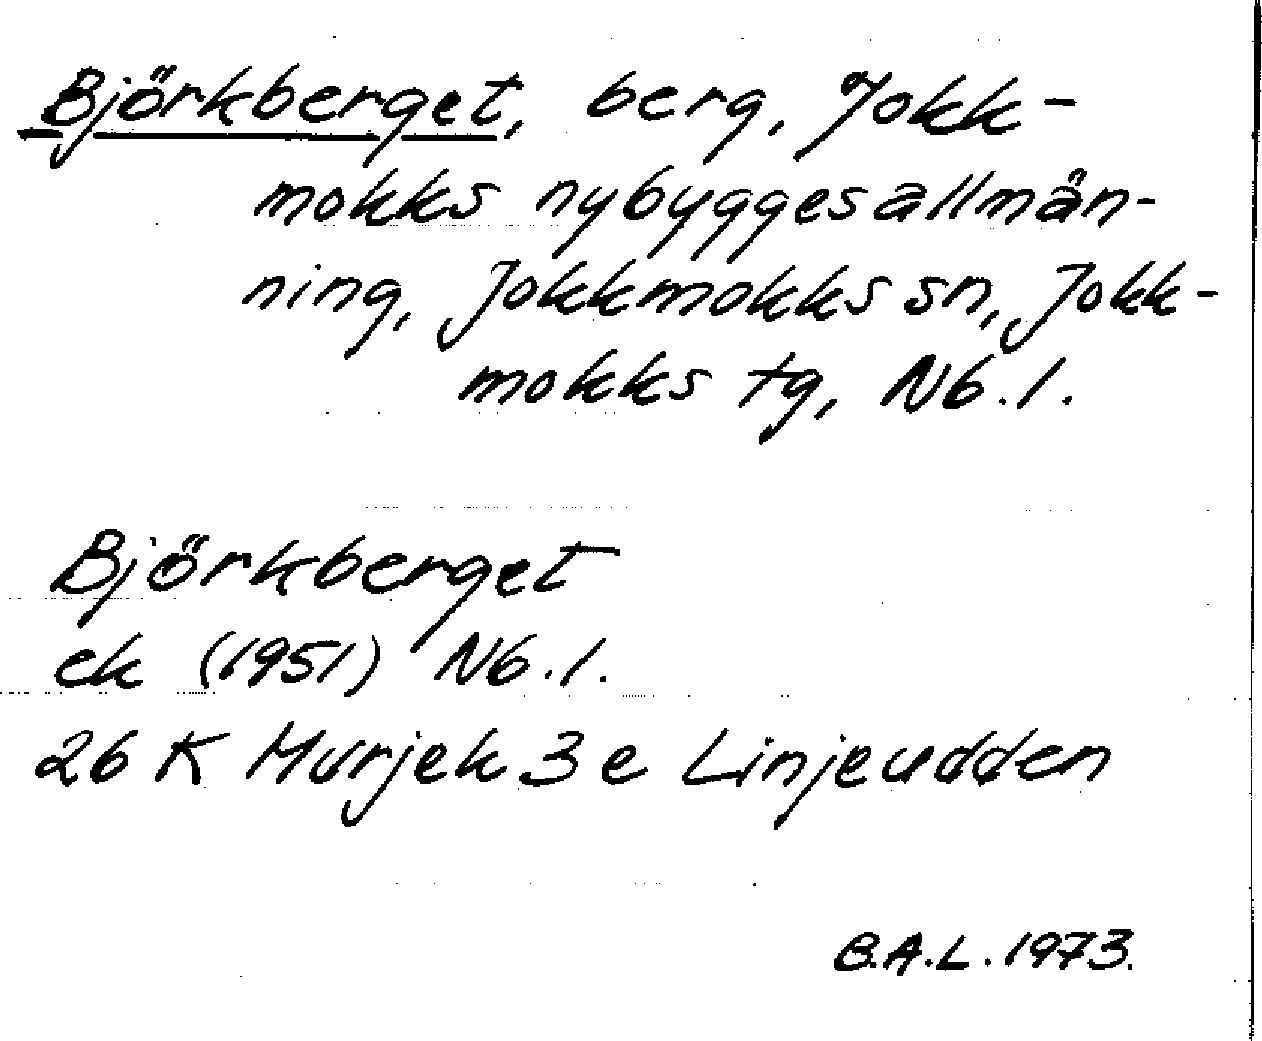 Björkberget, berg, Jokk-
mokks nybyggesallmän-
ning, Jokkmokks sn, Jokk-
mokks tg, Nb. l.
Björkberget
ek (1951) Nb. l.
26 K Murjek 3 e Linjeudden
B.A.L. 1973.